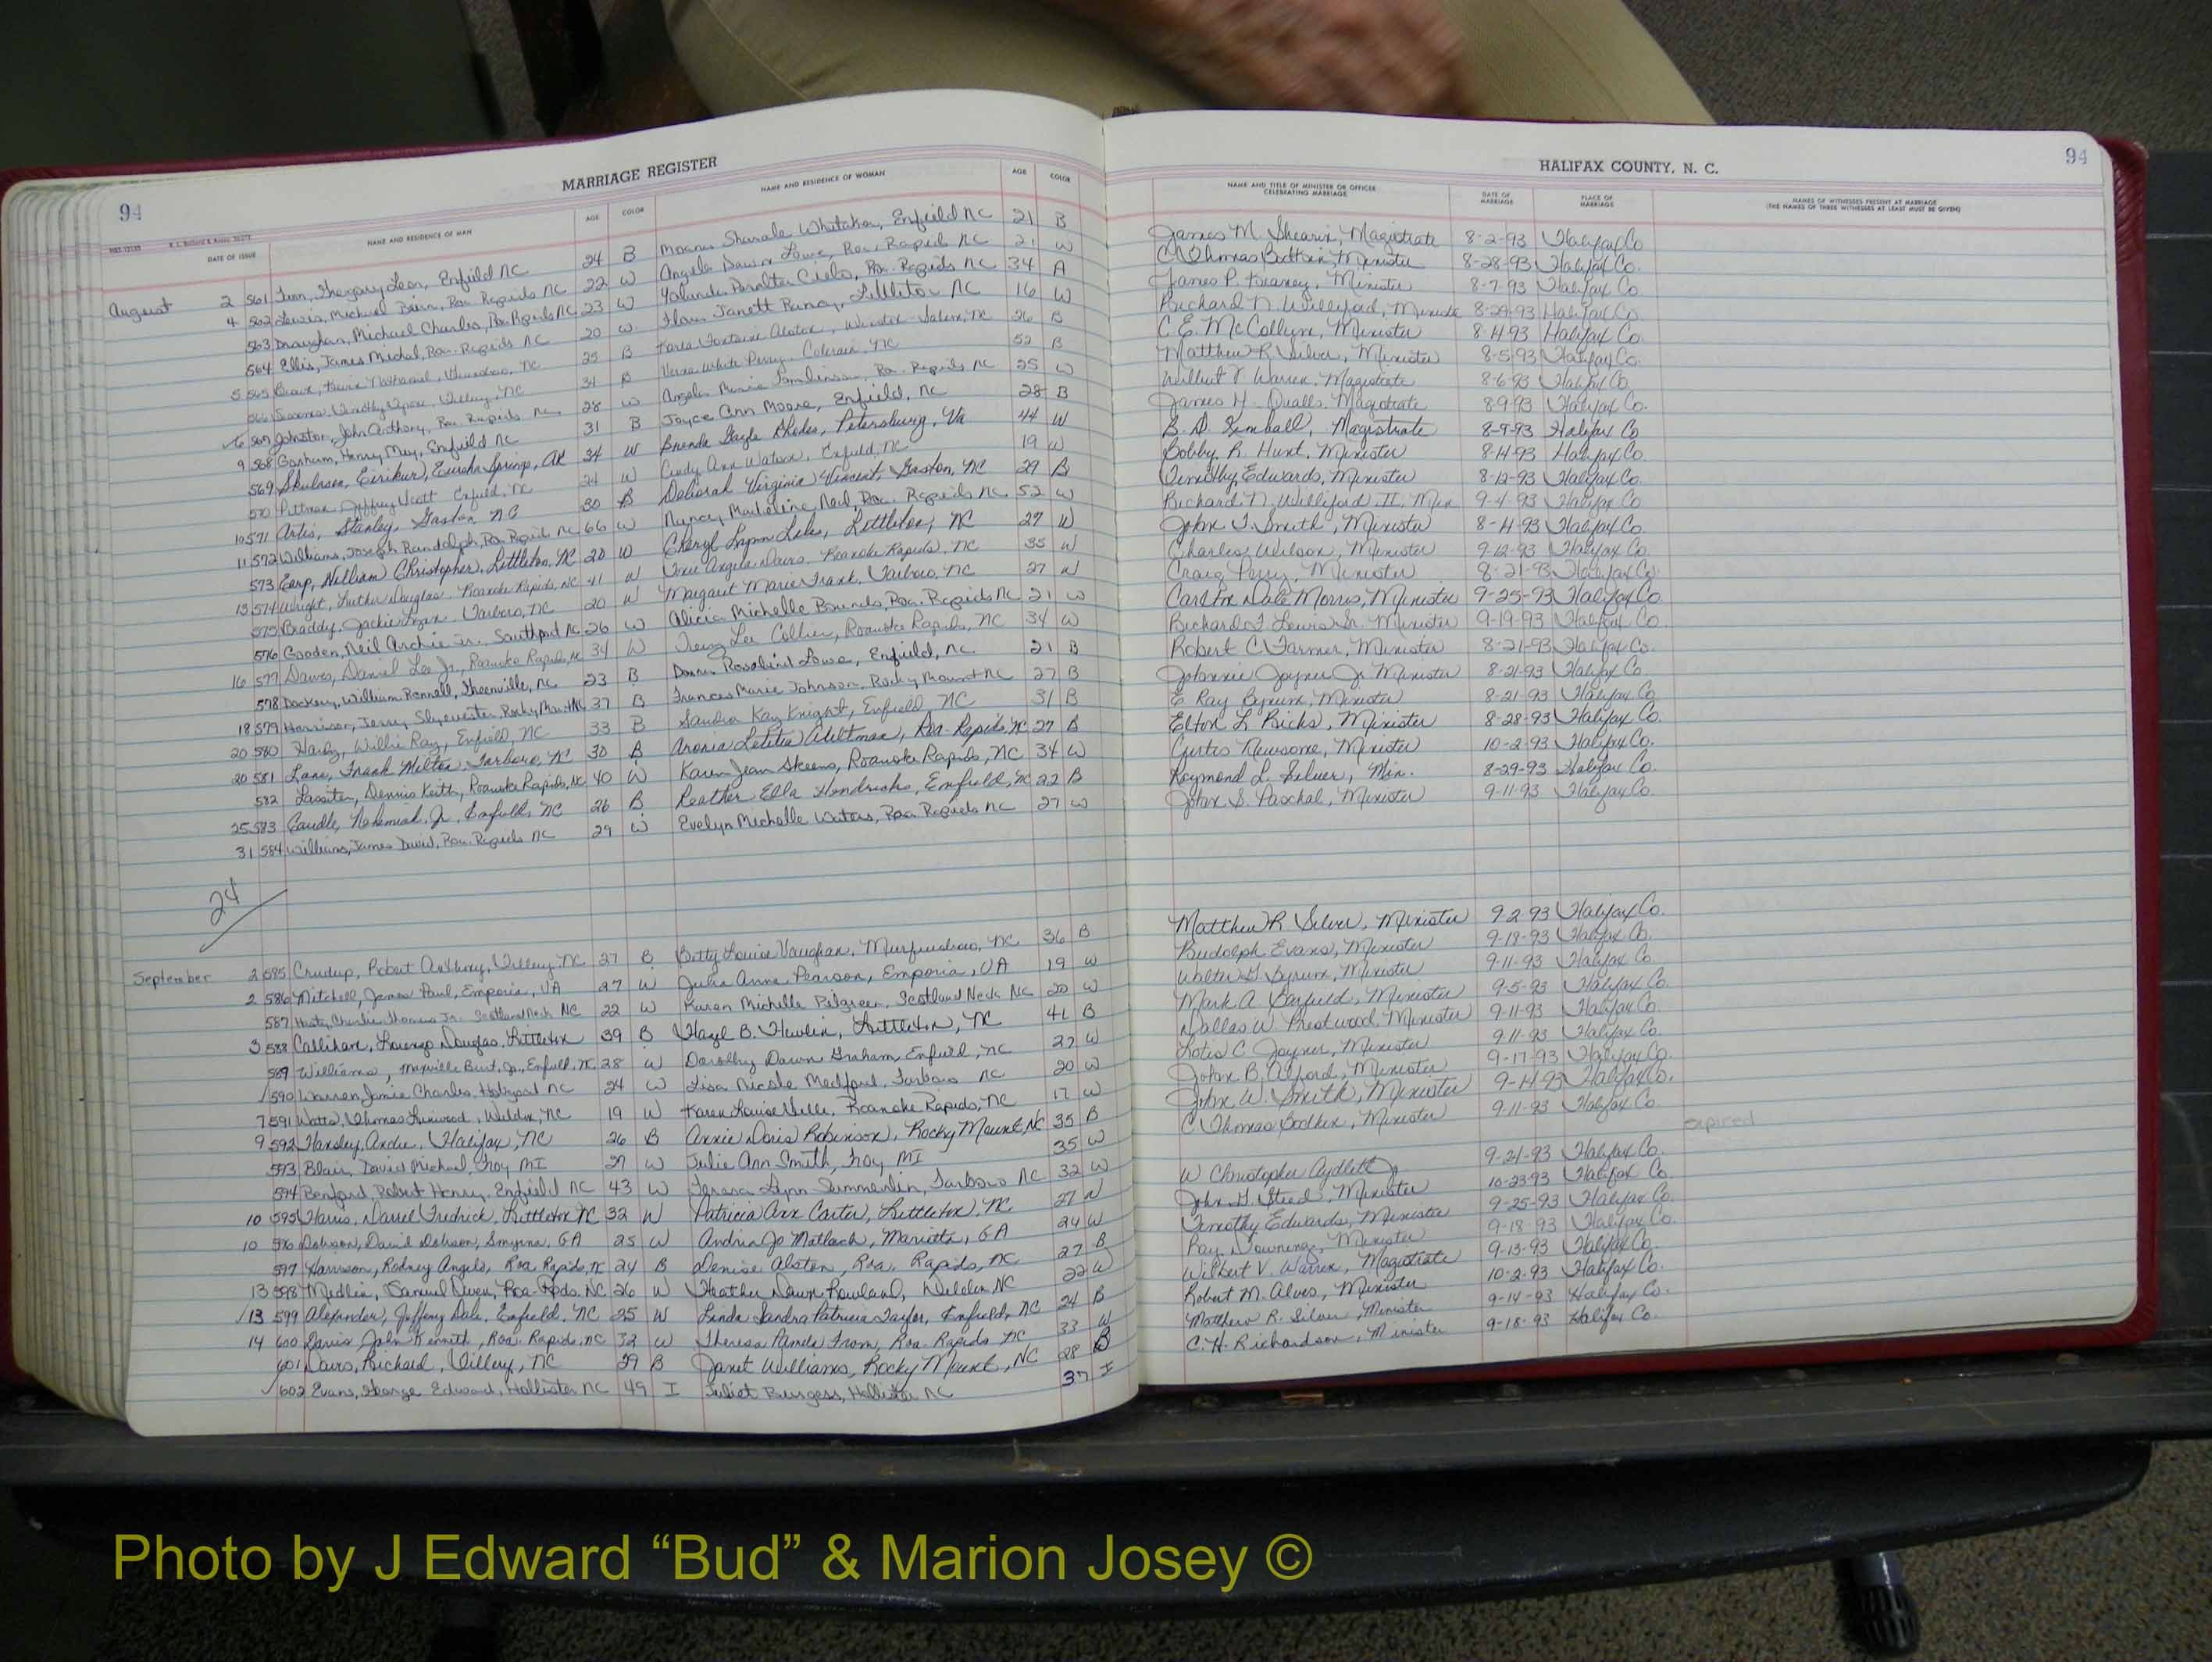 94
MARRIAGE REGISTER
DATE OF ISSUE NAME AND RESIDENCE OF MAN AGE COLOR NAME AND RESIDENCE OF WOMAN AGE COLOR
August 2 561 Leon, Enfield NC 24 B Sharale Whitaker, Enfield NC 21 B
4 562 Lewis, Michael Roa. Rapids NC 22 W Angela Dawn Lowe, Roa. Rapids NC 21 W
563 Draughan, Michael Charles, Roa Rapids NC 23 W Yolanda Peralta Roa. Rapids NC 34 A
564 Ellis, James Michal, Roa. Rapids NC 20 W Janett Littleton NC 16 W
5 565 Nathaniel, NC 25 B Fontaine Alston, Winston-Salem, NC 26 B
566 Tillery, NC 31 B White Perry, Colerain, NC 52 B
6 567 Johnston, John Anthony, Roa Rapids NC 28 W Angela Marie Tomlinson, Roa. Rapids NC 25 W
9 568 Gorham, Henry May, Enfield NC 31 B Joyce Ann Moore, Enfield, NC 28 B
569 Eureka Springs, AR 34 W Brenda Gayle Rhodes, Petersburg, Va 44 W
570 Pittman, Jeffrey Scott Enfield, NC 24 W Cindy Ann Watson, Enfield, NC 19 W
10 571 Artis, Stanley, Gaston NC 30 B Deborah Virginia Vincent, Gaston, NC 29 B
11 572 Williams, Joseph Randolph, Roa. Rapids NC 66 W Nancy Madeline Neil, Roa. Rapids NC 52 W
573 Earp, William Christopher, Littleton, NC 20 W Cheryl Lynn Liles, Littleton, NC 27 W
13 574 Wright, Luther Douglas Roanoke Rapids, NC 41 W Angela Davis, Roanoke Rapids, NC 35 W
575 Braddy, Jackie Tarboro, NC 20 W Margaret Marie Frank, Tarboro, NC 27 W
576 Gooden, Neil Archie Jr. Southport NC 26 W Alicia Michelle Bounds, Roa. Rapids NC 21 W
16 577 Dawes, Daniel Lee Jr., Roanoke Rapids, NC 34 W Lee Collier, Roanoke Rapids, NC 34 W
578 Dockery, William Ronnell, Greenville, NC 23 B Rosalind Lowe, Enfield, NC 21 B
18 579 Harrison, Jerry Slyevester, Rocky Mount NC 37 B Frances Marie Johnson, Rocky Mount NC 27 B
20 580 Hardy, Willie Ray, Enfield, NC 33 B Sandra Kay Knight, Enfield, NC 31 B
20 581 Lane, Frank Milton, Tarboro, NC 30 B Letitia Roa. Rapids, NC 27 B
582 Lassiter, Dennis Keith, Roanoke Rapids, NC 40 W Karen Jean Skeens, Roanoke Rapids, NC 34 W
25 583 Caudle, Nehemiah, Jr, Enfield, NC 26 B Ella Hendricks, Enfield, NC 22 B
31 584 Williams, James David, Roa. Rapids NC 29 W Evelyn Michelle Waters, Roa Rapids NC 27 W
24
September 2 585 Crudup, Robert Anthony, Tillery, NC 27 B Betty Louise Vaughan, Murfreesboro, NC 36 B
2 586 Mitchell, James Paul, Emporia, VA 27 W Julia Anne Pearson, Emporia, VA 19 W
587 Charlie Thomas Jr. Scotland Neck NC 22 W Karen Michelle Pilgreen, Scotland Neck NC 20 W
3 588 Callihan, Lorenzo Douglas, Littleton 39 B Hazel B. Hawlin, Littleton, NC 41 B
589 Williams, Burt, Jr, Enfield, NC 28 W Dorothy Dawn Graham, Enfield, NC 27 W
590 Warren, Jamie Charles, Hobgood NC 24 W Lisa Nicole Medford, Tarboro NC 20 W
7 591 Watts, Thomas Linwood, Weldon, NC 19 W Karen Louise Roanoke Rapids, NC 17 W
9 592 Hansley, Andre, Halifax, NC 26 B Annie Doris Robinson, Rocky Mount, NC 35 B
593 Blair, David Michael, Troy MI 27 W Julie Ann Smith, Troy MI 35 W
594 Benford, Robert Henry, Enfield NC 43 W Teresa Lynn Summerlin, Tarboro NC 32 W
10 595 Harris, Darrel Fredrick, Littleton NC 32 W Patricia Ann Carter, Littleton, NC 27 W
10 596 Dobson, David Dobson, Smyrna, GA 25 W Andrea Jo Matlach, Marietta, GA 24 W
597 Harrison, Rodney Angelo, Roa Rapids, NC 24 B Denise Alston, Roa. Rapids, NC 27 B
13 598 Medlin, Samuel Owen, Roa-Rpds. NC 26 W Heather Dawn Rowland, Weldon NC 22 W
13 599 Alexander, Jeffery Dale, Enfield, NC 25 W Linda Sandra Patricia Taylor, Enfield, NC 24 B
14 600 Davis, John Kenneth, Roa. Rapids, NC 32 W Theresa Roa. Rapids NC 33 W
601 Davis, Richard, Tillery, NC 29 B Janet Williams, Rocky Mount, NC 28 B
602 Evans, George Edward, Hollister NC 49 I Juliet Burgess, Hollister NC 37 I
HALIFAX COUNTY, N. C.
94
NAME AND TITLE OF MINISTER OR OFFICER CELEBRATING MARRIAGE DATE OF MARRIAGE PLACE OF MARRIAGE NAMES OF WITNESSES PRESENT AT MARRIAGE (THE NAMES OF THREE WITNESSES AT LEAST MUST BE GIVEN)
James M. Shearin, Magistrate 8-2-93 Halifax Co
C Thomas Minister 8-28-93 Halifax Co.
James P. Minister 8-7-93 Halifax Co
Richard N. Williford, Minister 8-29-93 Halifax Co.
C.E. McCollum, Minister 8-14-93 Halifax Co
Matthew R Silver, Minister 8-5-93 Halifax Co.
Wilbert V Warren, Magistrate 8-6-93 Halifax Co.
James H. Qualls, Magistrate 8-9-93 Halifax Co.
Kimball, Magistrate 8-9-93 Halifax Co
Bobby R. Hunt, Minister 8-14-93 Halifax Co.
Timothy Edwards, Minister 8-12-93 Halifax Co.
Richard N. Williford, II, Min 9-4-93 Halifax Co
John T. Smith, Minister 8-14-93 Halifax Co.
Charles Wilson, Minister 9-12-93 Halifax Co.
Craig Perry, Minister 8-21-93 Halifax Co.
Carlton Dale Morris, Minister 9-25-93 Halifax Co.
Richard Lewis Sr. Minister 9-19-93 Halifax Co.
Robert C Farmer, Minister 8-21-93 Halifax Co.
Johnnie Joyner Jr Minister 8-21-93 Halifax Co
E Ray Byrum, Minister 8-21-93 Halifax Co
Elton L Ricks, Minister 8-28-93 Halifax Co.
Curtis Newsome, Minister 10-2-93 Halifax Co.
Raymond L. Silver, Min. 8-29-93 Halifax Co.
John S. Paschal, Minister 9-11-93 Halifax Co.
Matthew R Silver, Minister 9-2-93 Halifax Co.
Rudolph Evans, Minister 9-18-93 Halifax Co.
Walter Byrum, Minister 9-11-93 Halifax Co
Mark A. Barfield, Minister 9-5-93 Halifax Co.
Dallas W. Prestwood, Minister 9-11-93 Halifax Co
Lotis C. Joyner, Minister 9-11-93 Halifax Co.
John B. Alford, Minister 9-17-93 Halifax Co.
John W. Smith, Minister 9-14-93 Halifax Co.
C Thomas Minister 9-11-93 Halifax Co
expired
W Christopher Aydlett 9-21-93 Halifax Co.
John Steed, Minister 10-23-93 Halifax Co.
Timothy Edwards, Minister 9-25-93 Halifax Co
Ray Downing, Minister 9-18-93 Halifax Co.
Wilbert V. Warren, Magistrate 9-13-93 Halifax Co.
Robert M. Alves, Minister 10-2-93 Halifax Co.
Matthew R. Silver, Minister 9-14-93 Halifax Co.
C.H. Richardson, Minister 9-18-93 Halifax Co.
Photo by J Edward “Bud” & Marion Josey ©